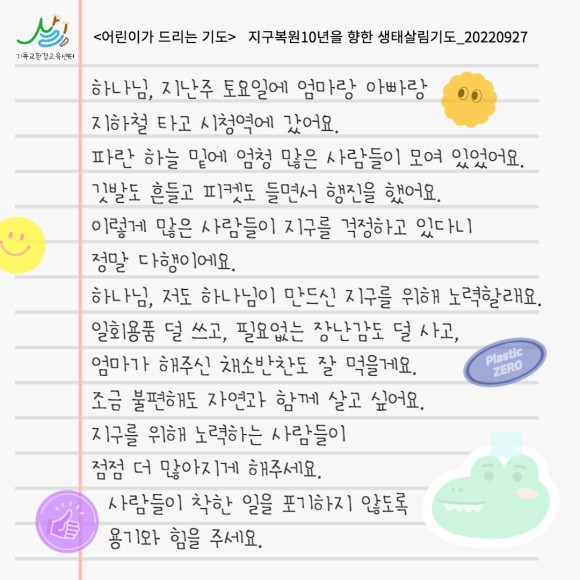 살림
기독교환경교육센터
<어린이가 드리는 기도> 지구복원10년을 향한 생태살림기도_20220927
하나님, 지난주 토요일에 엄마랑 아빠랑
지하철 타고 시청역에 갔어요.
파란 하늘 밑에 엄청 많은 사람들이 모여 있었어요.
깃발도 흔들고 피켓도 들면서 행진을 했어요.
이렇게 많은 사람들이 지구를 걱정하고 있다니
정말 다행이에요.
하나님, 저도 하나님이 만드신 지구를 위해 노력할래요.
일회용품 덜 쓰고, 필요없는 장난감도 덜 사고,
엄마가 해주신 채소반찬도 잘 먹을게요.
Plastic
ZERO
조금 불편해도 자연과 함께 살고 싶어요.
지구를 위해 노력하는 사람들이
점점 더 많아지게 해주세요.
사람들이 착한 일을 포기하지 않도록
용기와 힘을 주세요.